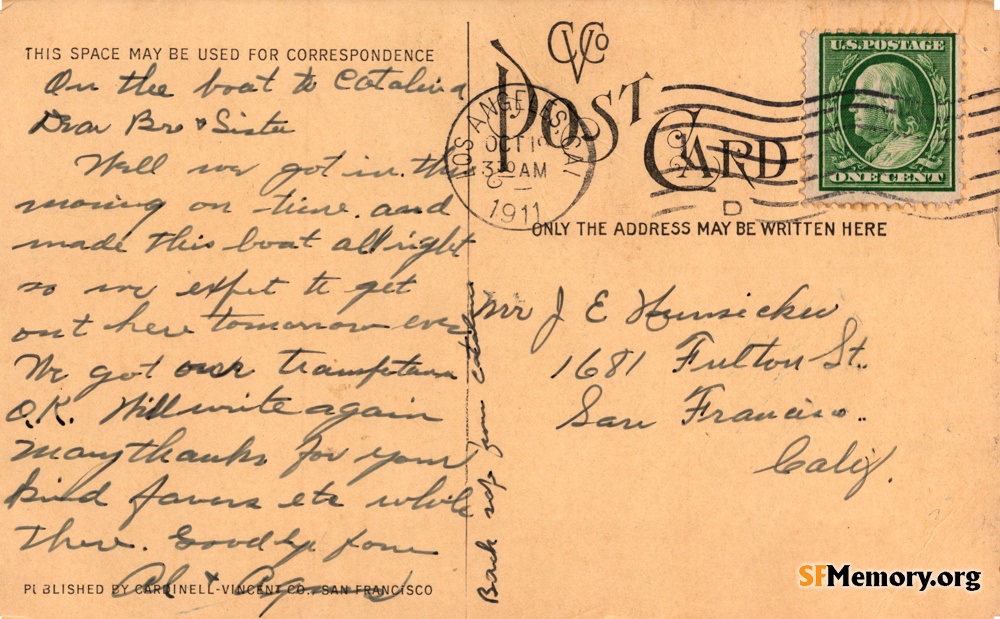 THIS SPACE MAY BE USED FOR CORRESPONDENCE
On the boat to Catalina
Dear Bro & Sister
Well we got in this
morning on time and
made this boat all right
so we expet to get
out here tomorrow eve
We got our
O.K. Will write again
Many thanks for your
kind favors etc while
there. Goodby from
Al & Agnes
PUBLISHED BY CARDINELL-VINCENT CO., SAN FRANCISCO
Back from Catalina
CVCo
POST CARD
LOS ANGELES, CAL
OCT
3 30 AM
1911
D
U.S. POSTAGE
ONE CENT
ONLY THE ADDRESS MAY BE WRITTEN HERE
Mr J E Hunsicker
1681 Fulton St.
San Francisco.
Calif.
SFMemory.org